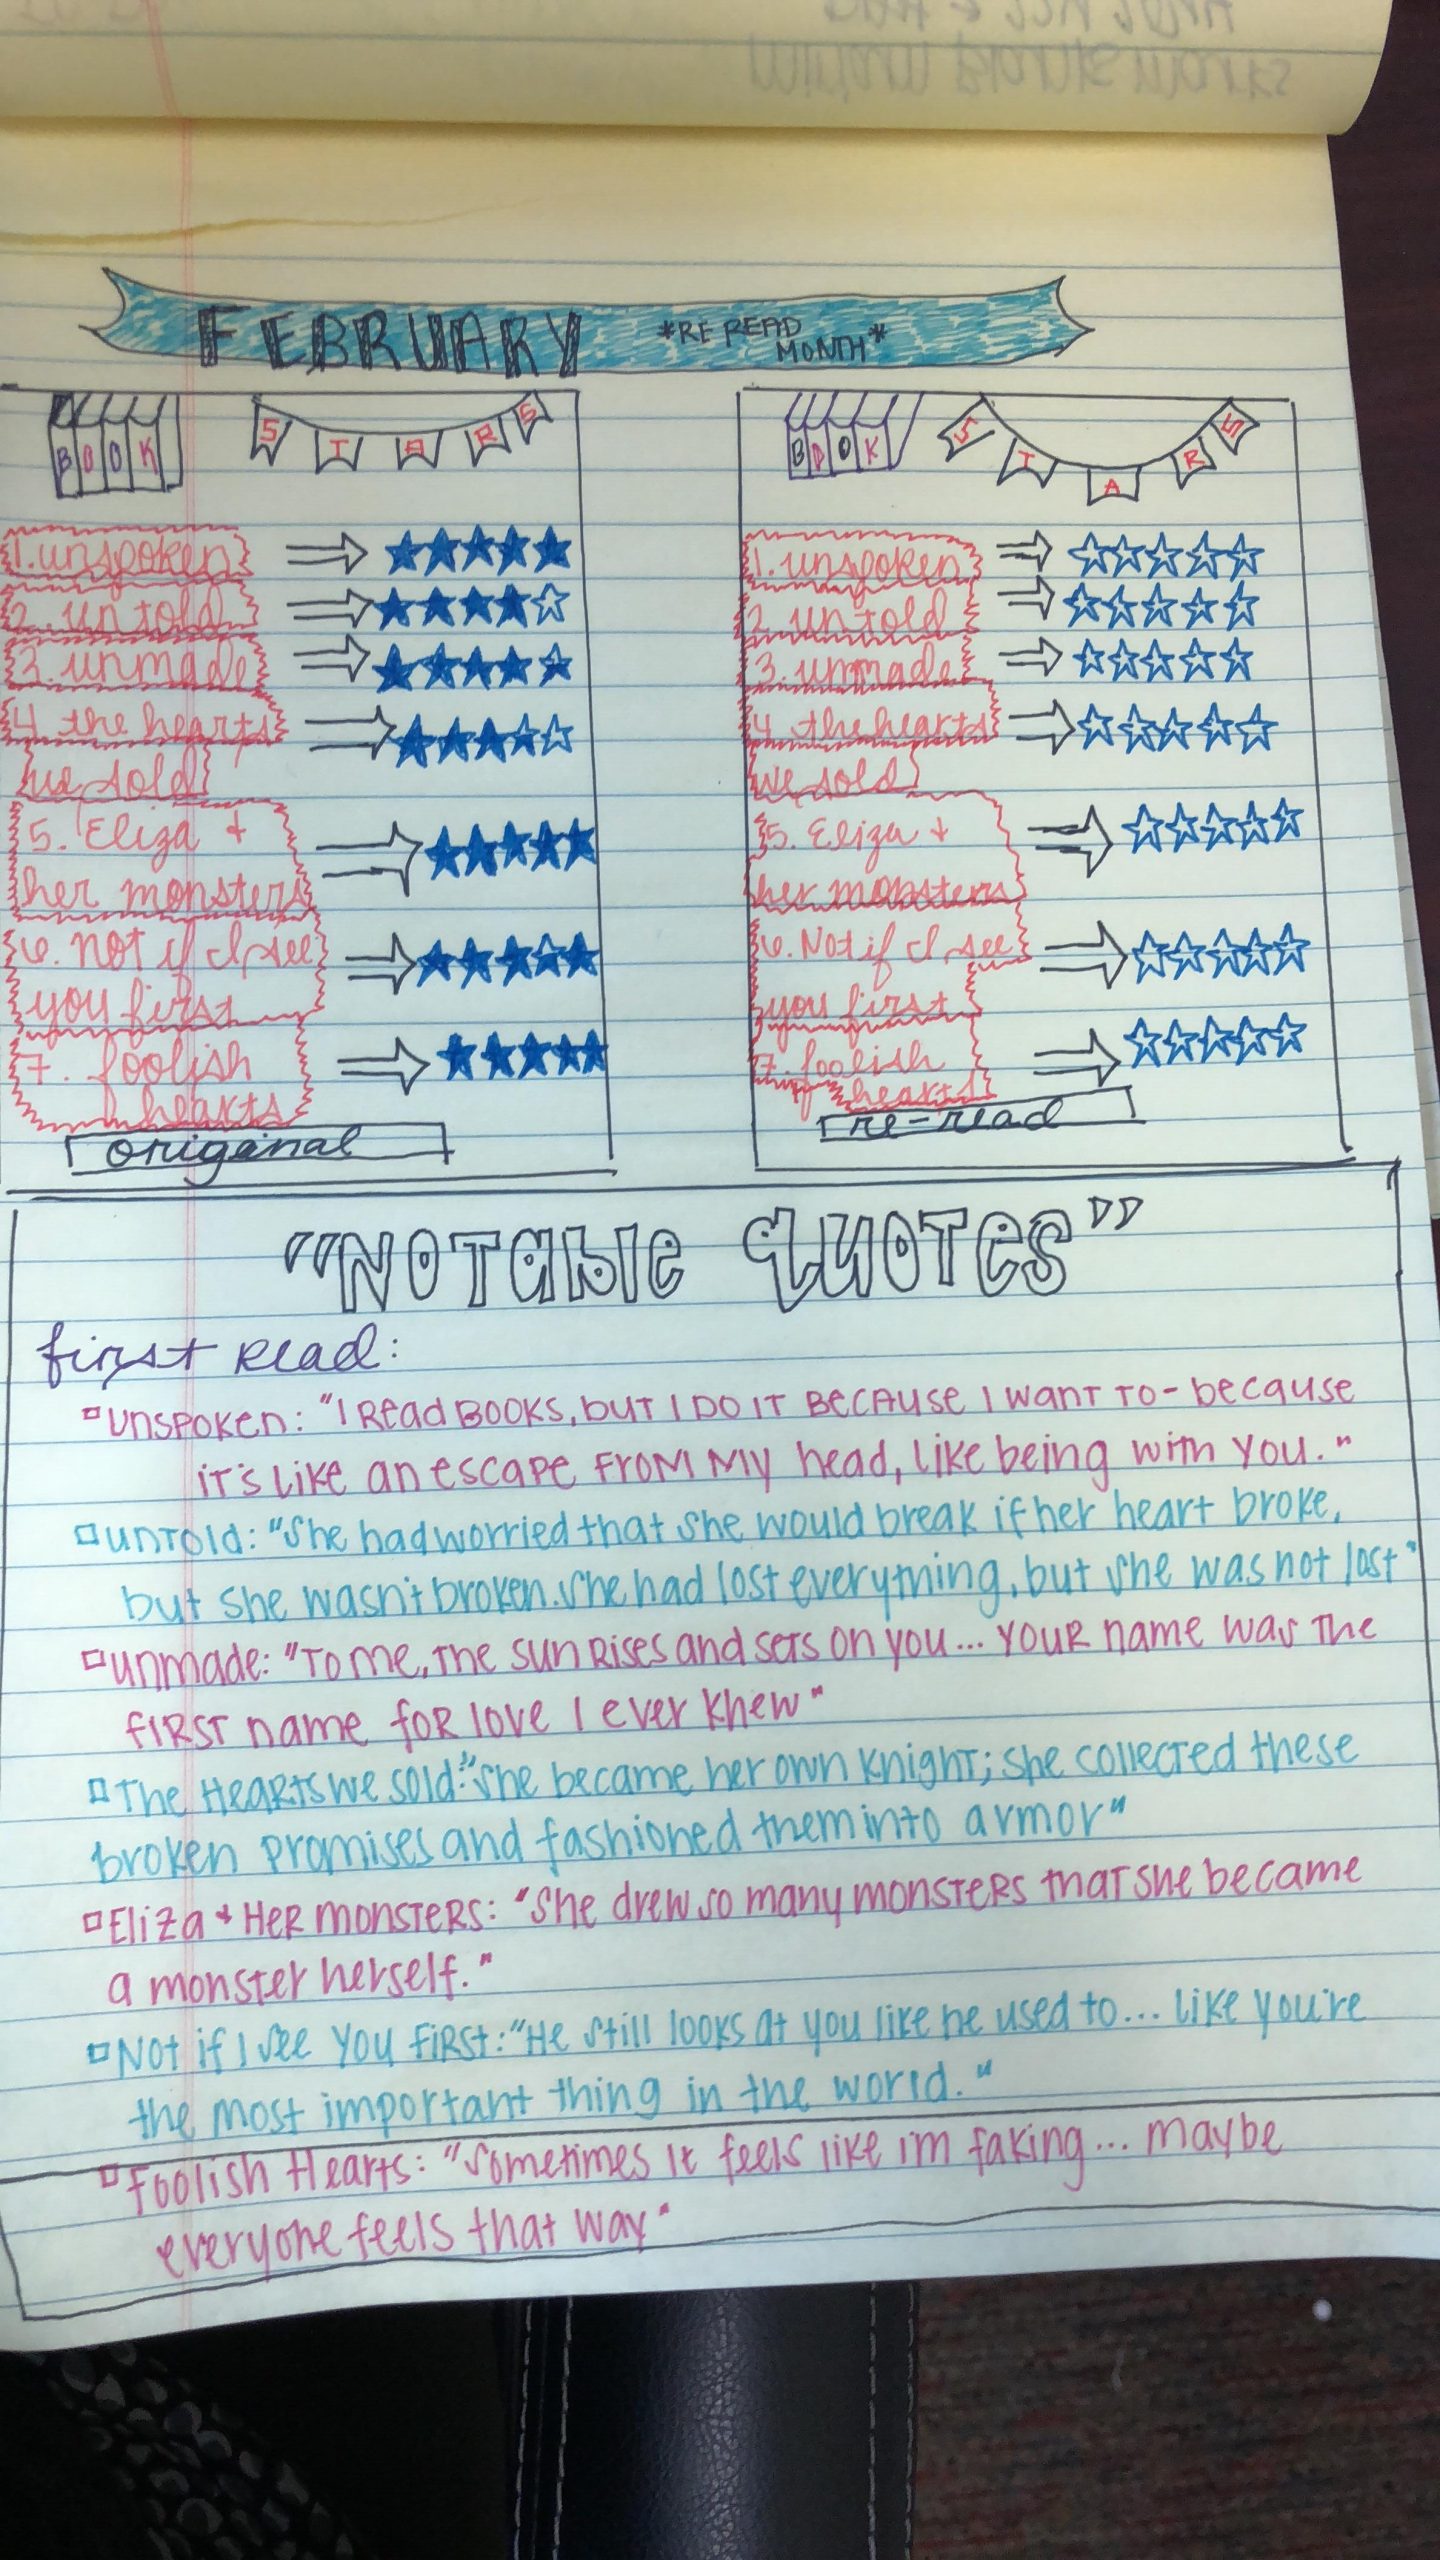 FEBRUARY *RE READ
MONTH*
BOOK STARS
1. unspoken
2. untold
3. unmade
4. the hearts
we sold
5. Eliza +
her monsters
6. Not if I see
you first
7. foolish
hearts
original
BOOK STARS
1. unspoken
2. untold
3. unmade
4. the hearts
we sold
5. Eliza +
her monsters
6. Not if I see
you first
7. foolish
hearts
re-read
"NOTable QUOTes"
first read:
UNSPOKEN: "I Read BOOKS, bUT I DO IT BECAUSE I WANT TO- because
IT'S LIKE an escape FROM MY head, like being with you."
UNTOLD: "She had worried that she would break if her heart broke,
but she wasn't broken. She had lost everything, but she was not lost"
unmade: "TO me, The sun Rises and sets on you... YOUR name was The
FIRST name for love I ever knew"
The HeARTS we sold: "She became her own knight; she collected these
broken promises and fashioned them into armor"
Eliza + Her monsTERS: "She drew so many monsTERS that she became
a monster herself."
Not if I see you First: "He still looks at you like he used to... like you're
the most important thing in the world."
Foolish Hearts: "Sometimes it feels like im faking... maybe
everyone feels that way"